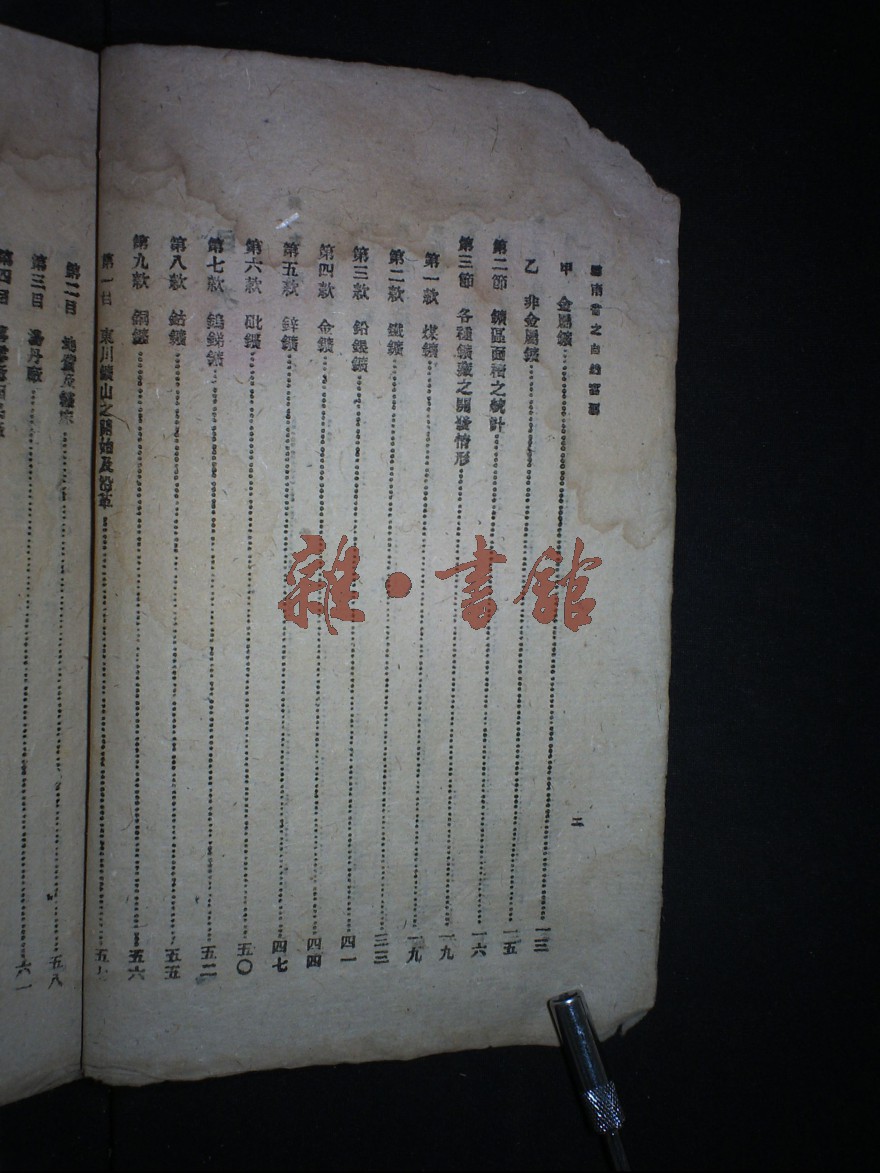 雲南省之自然富源
二
甲 金屬鑛 一三
乙 非金屬鑛 一五
第二節 鑛區面積之統計 一六
第三節 各種鑛藏之開發情形 一九
第一款 煤鑛 一九
第二款 鐵鑛 三三
第三款 鉛銀鑛 四一
第四款 金鑛 四四
第五款 鋅鑛 四七
第六款 砒鑛 五〇
第七款 鎢銻鑛 五二
第八款 鈷鑛 五五
第九款 銅鑛 五六
第一目 東川鑛山之開始及沿革
第二目 地質及鑛床 五八
第三目 湯丹廠 六一
第四目
雜·書館